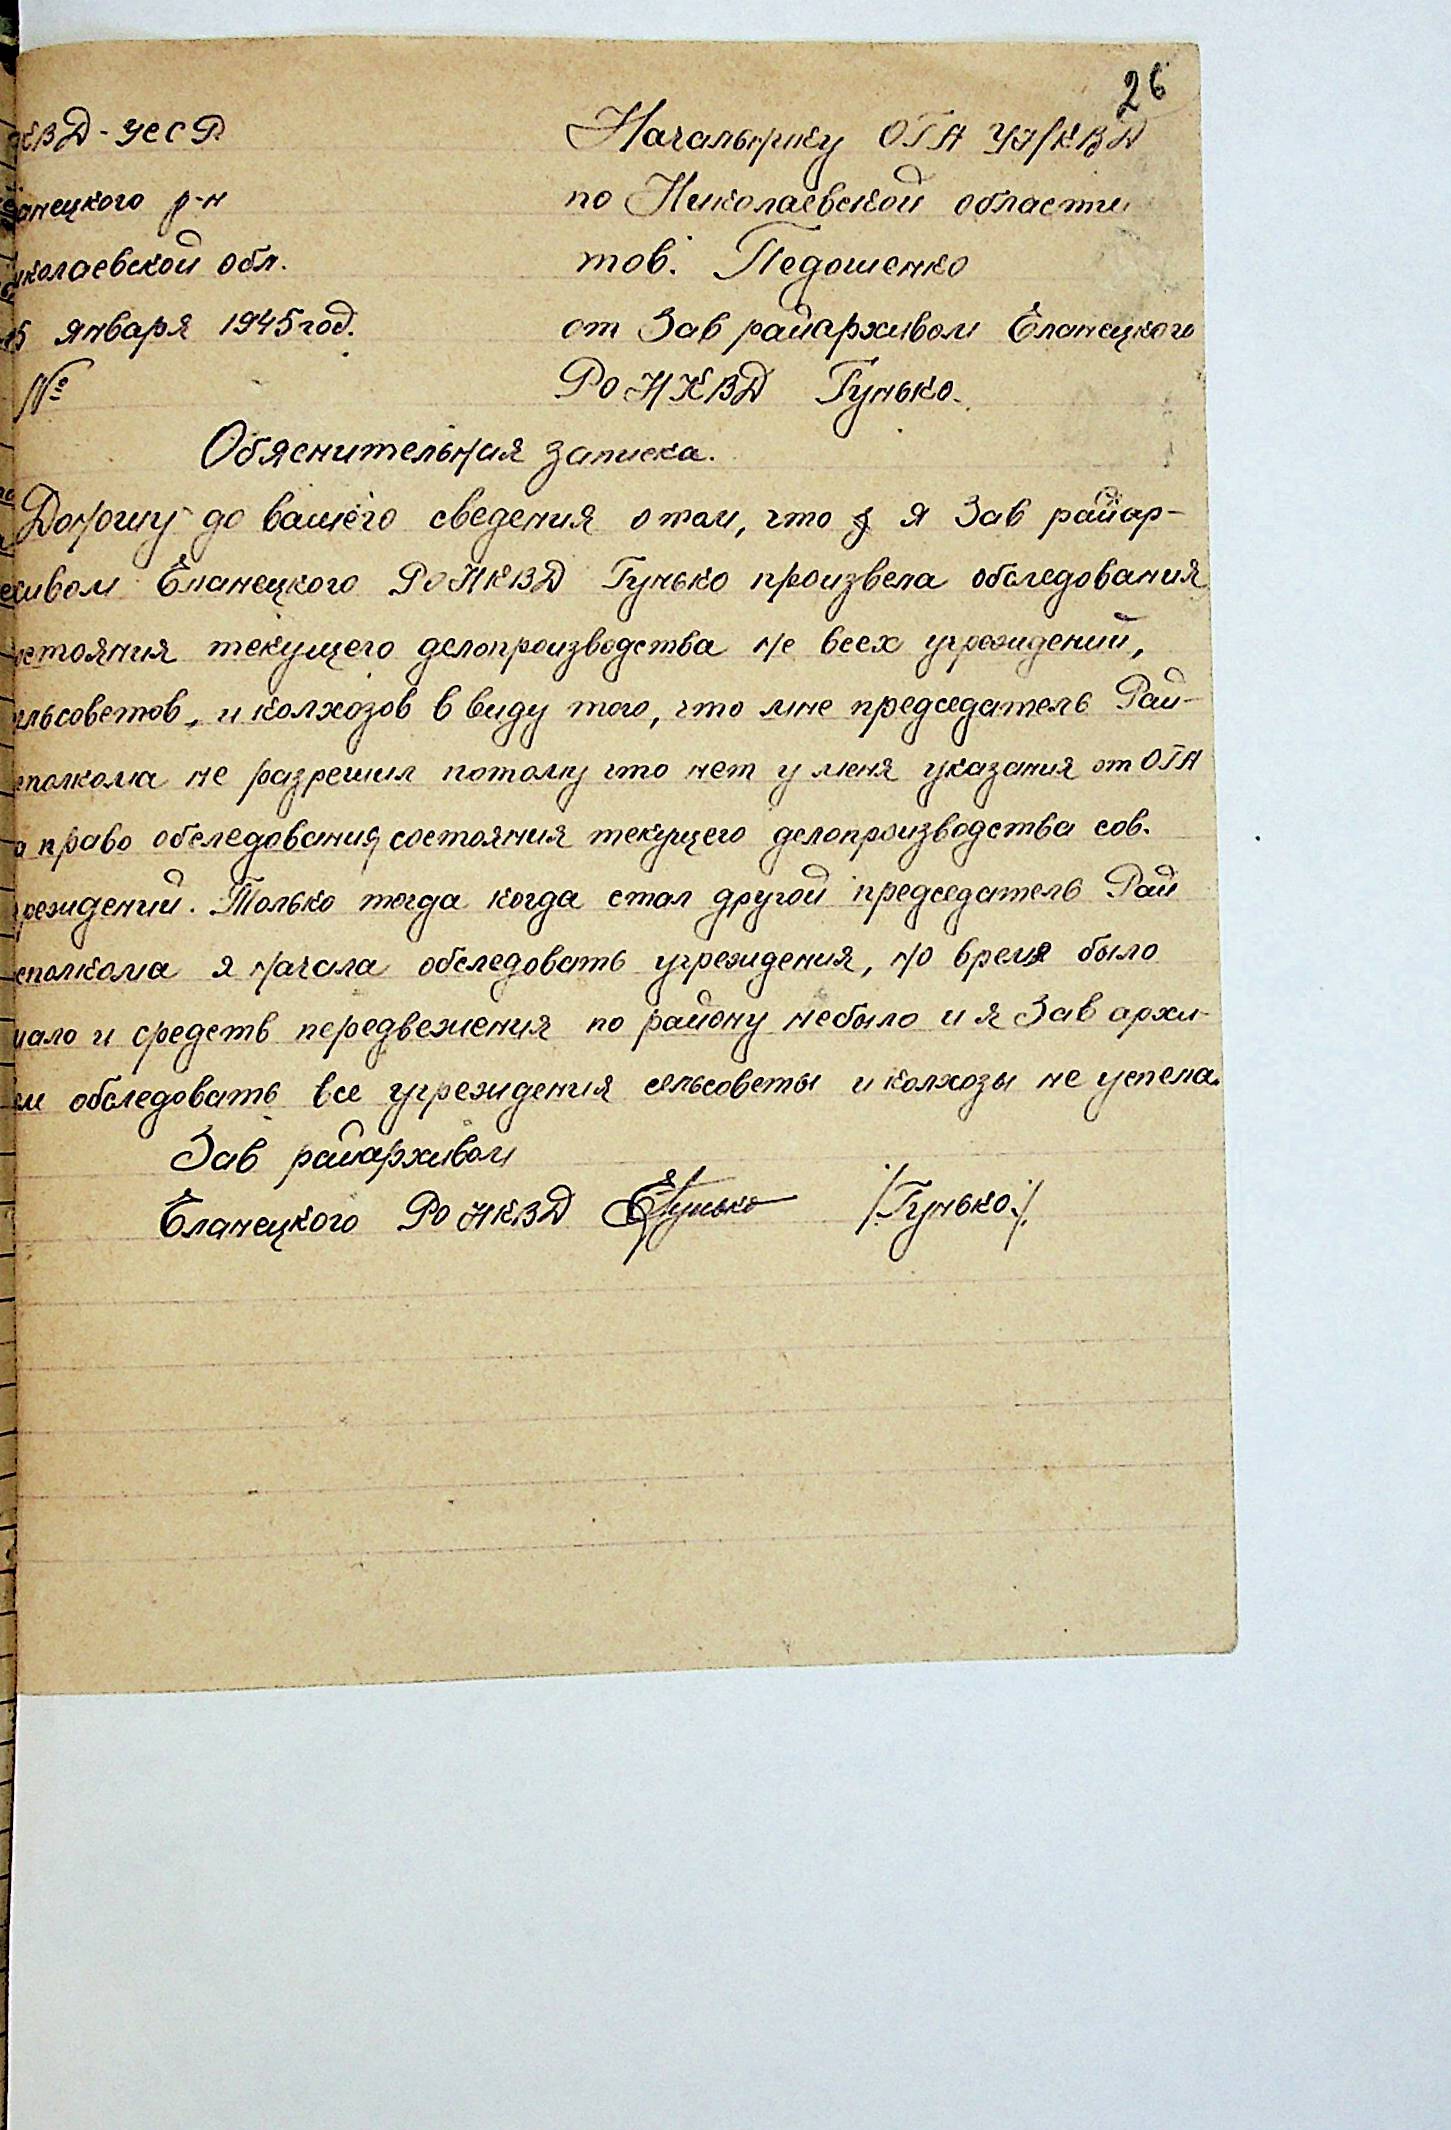 26
КВД - УССР
анецкого р-н
иколаевской обл.
15 января 1945 год.
№
Начальнику ОГА УНКВД
по Николаевской области
тов. Педошенко
от Зав райархивом Еланецкого
РоНКВД Гунько.
Обяснительная записка.
Доношу до вашего сведения о том, что я Зав райар-
хивом Еланецкого РоНКВД Гунько произвела обследования
остояния текущего делопроизводства не всех учреждений,
ельсоветов, и колхозов в виду того, что мне председатель Рай-
сполкома не разрешил потому что нет у меня указания от ОГА
а право обследования состояния текущего делопроизводства сов.
чреждений. Только тогда когда стал другой председатель Рай
сполкома я начала обследовать учреждения, но время было
мало и средств передвежения по району небыло и я Зав архи-
ом обследовать все учреждения сельсоветы и колхозы не успела.
Зав райархивом
Еланецкого РоНКВД ЕГунько /.Гунько./